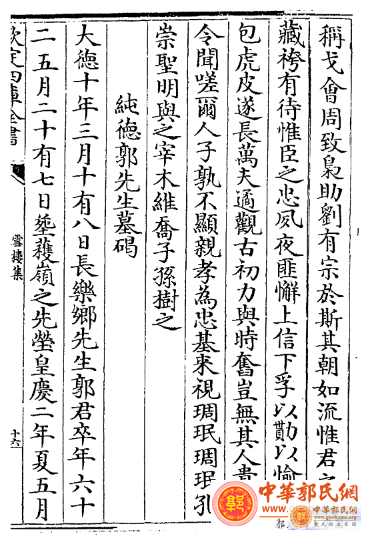 稱戈會周致梟助劉有宗於斯其朝如流惟君
藏袴有待惟臣之忠夙夜匪懈上信下孚以勩以愉
包虎皮遂長萬夫遹觀古初力與時奮豈無其人
令聞嗟爾人子孰不顯親孝為忠基來視琱珉琱珉孔
崇聖明與之宰木維喬子孫樹之
純德郭先生墓碣
大德十年三月十有八日長樂鄉先生郭君卒年六十
二五月二十有七日塟䕶嶺之先塋皇慶二年夏五月
欽定四庫全書
雪樓集
十六
中華郭氏網
中華郭氏網